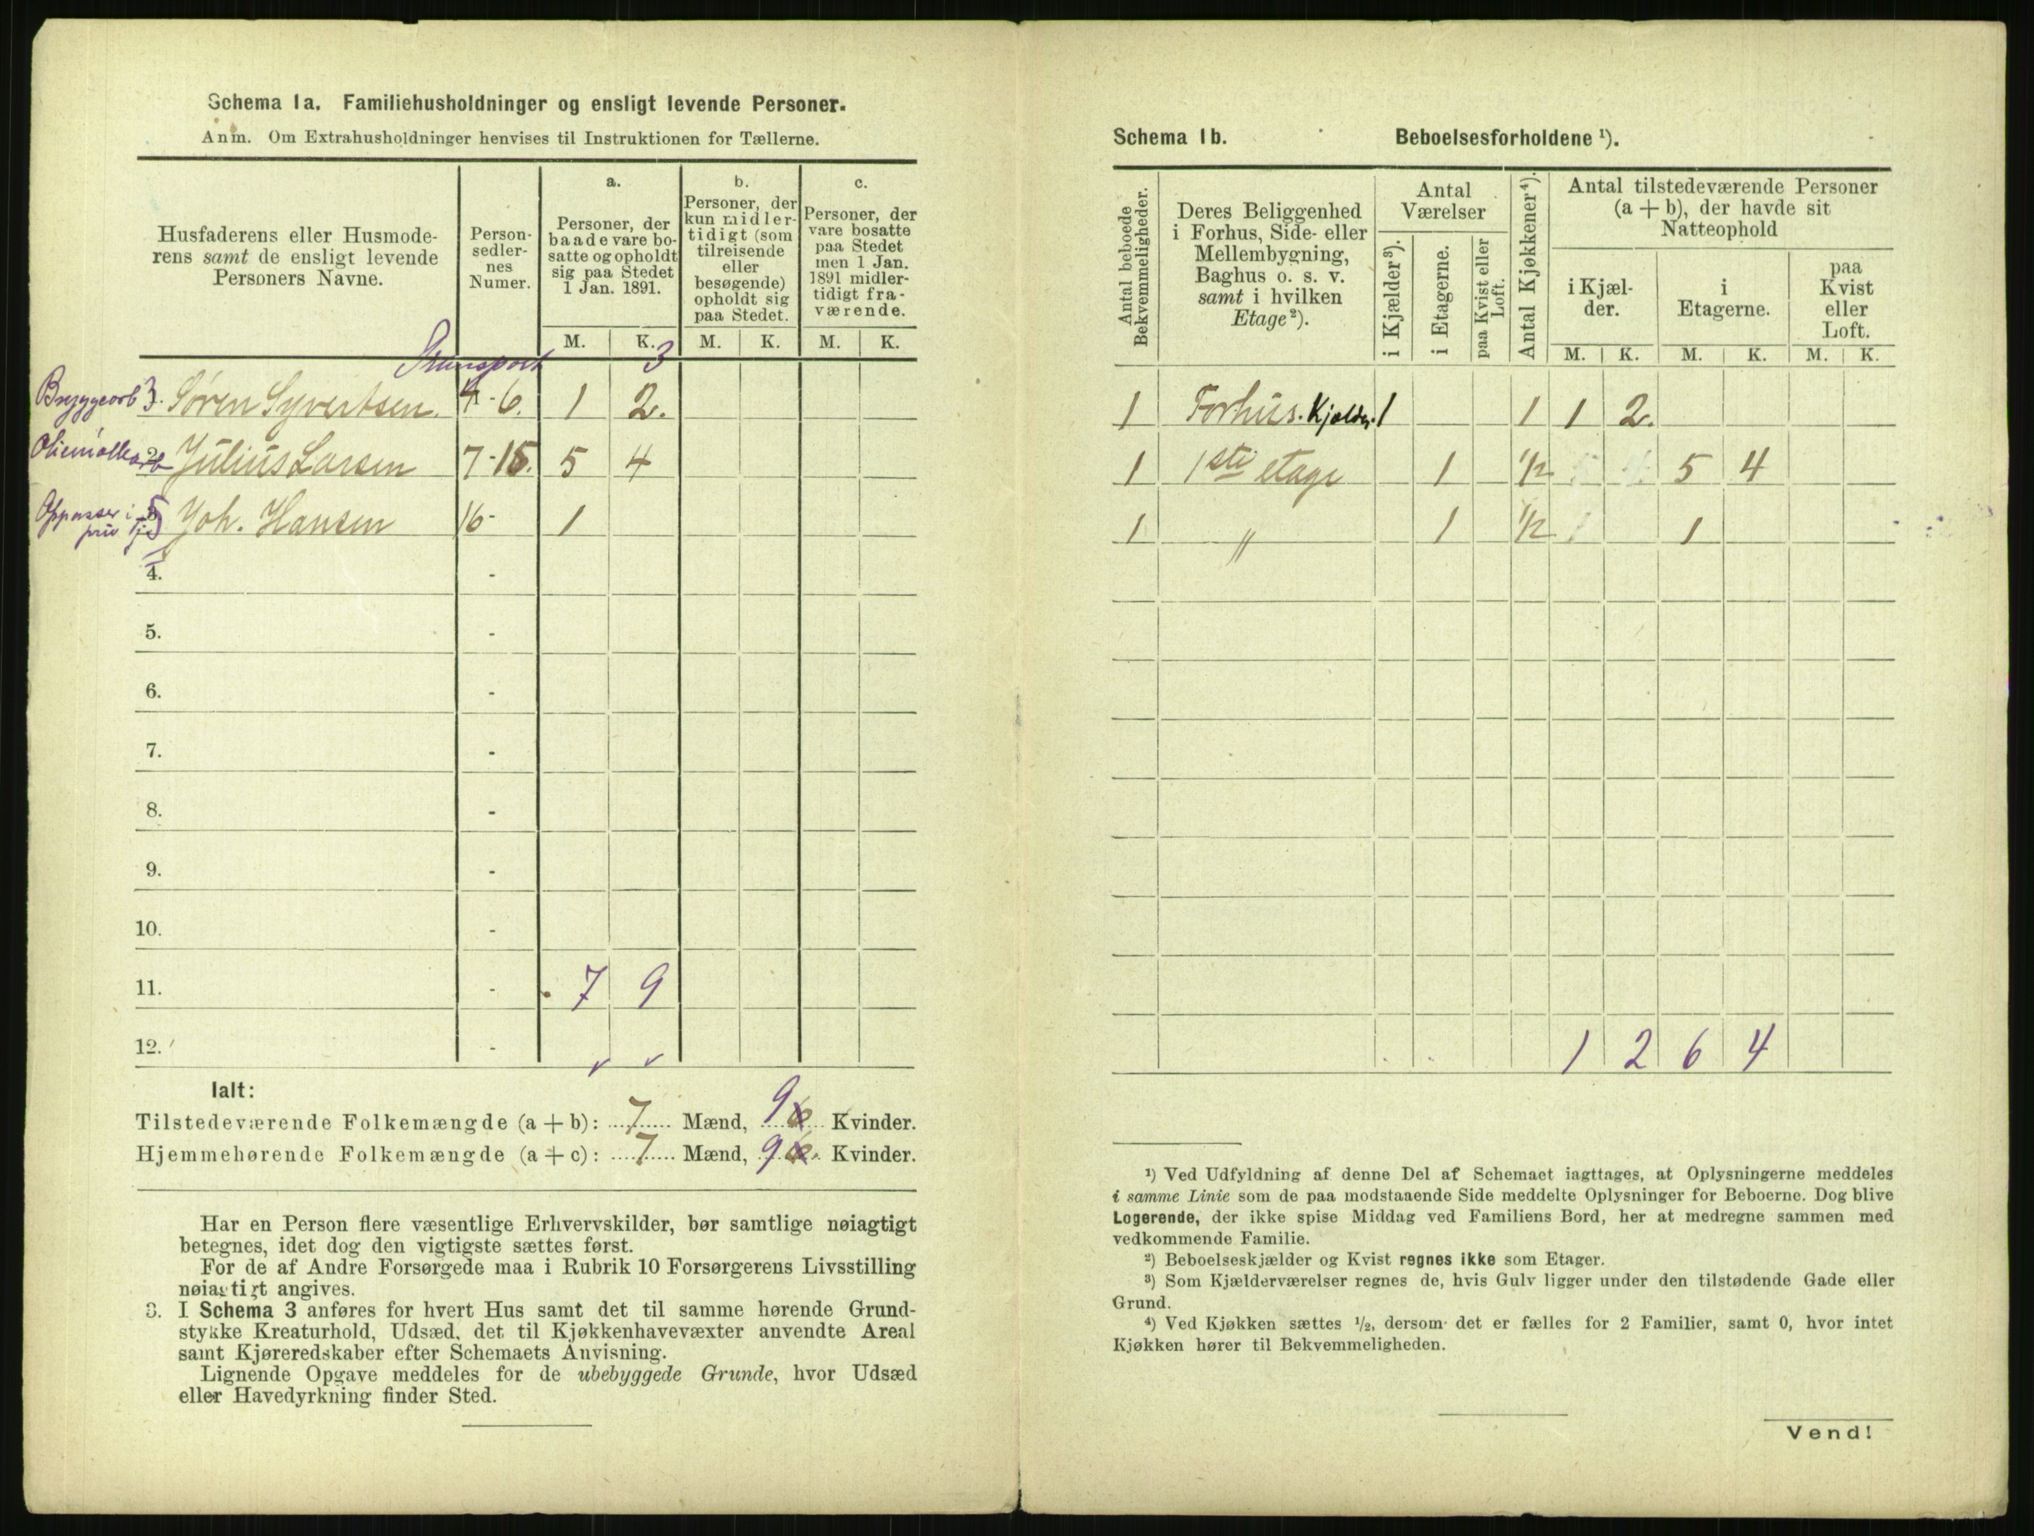 Schema 1a. Familiehusholdninger og ensligt levende Personer.
Anm. Om Extrahusholdninger henvises til Instruktionen for Tællerne.
Husfaderens eller Husmoderens samt de ensligt levende Personers Navne.
Person-sedler-nes Numer.
a.
Personer, der baade vare bosatte og opholdt sig paa Stedet 1 Jan. 1891.
b.
Personer, der kun midlertidigt (som tilreisende eller besøgende) opholdt sig paa Stedet.
c.
Personer, der vare bosatte paa Stedet men 1 Jan. 1891 midlertidigt fraværende.
M. K. M. K. M. K.
Transport 3
Bryggearb 3. Søren Syvertsen. 4 - 6. 1 2.
Oliemøllearb 2 Julius Larsen 7 - 15. 5 4
Oppasser i priv Joh. Hansen 16 - 1
4. -
5. -
6. -
7. -
8. -
9. -
10. -
11. - 7 9
12. -
Ialt:
Tilstedeværende Folkemængde (a + b): 7 Mænd, 9 Kvinder.
Hjemmehørende Folkemængde (a + c): 7 Mænd, 9 Kvinder.
Har en Person flere væsentlige Erhvervskilder, bør samtlige nøiagtigt
betegnes, idet dog den vigtigste sættes først.
For de af Andre Forsørgede maa i Rubrik 10 Forsørgerens Livsstilling
nøiagtigt angives.
3. I Schema 3 anføres for hvert Hus samt det til samme hørende Grund-
stykke Kreaturhold, Udsæd, det til Kjøkkenhavevæxter anvendte Areal
samt Kjøreredskaber efter Schemaets Anvisning.
Lignende Opgave meddeles for de ubebyggede Grunde, hvor Udsæd
eller Havedyrkning finder Sted.
Schema 1b. Beboelsesforholdene ¹).
Antal beboede Bekvemmeligheder.
Deres Beliggenhed i Forhus, Side- eller Mellembygning, Baghus o. s. v. samt i hvilken Etage²).
Antal Værelser
i Kjælder³).
i Etagerne.
paa Kvist eller Loft.
Antal Kjøkkener⁴).
Antal tilstedeværende Personer (a + b), der havde sit Natteophold
i Kjælder.
i Etagerne.
paa Kvist eller Loft.
M. K. M. K. M. K.
1 Forhus. Kjelder. 1 1 1 2.
1 1ste etage 1 1/2 5 4
1 " 1 1/2 1
1 2 6 4
¹) Ved Udfyldning af denne Del af Schemaet iagttages, at Oplysningerne meddeles
i samme Linie som de paa modstaaende Side meddelte Oplysninger for Beboerne. Dog blive
Logerende, der ikke spise Middag ved Familiens Bord, her at medregne sammen med
vedkommende Familie.
²) Beboelseskjælder og Kvist regnes ikke som Etager.
³) Som Kjælderværelser regnes de, hvis Gulv ligger under den tilstødende Gade eller
Grund.
⁴) Ved Kjøkken sættes 1/2, dersom det er fælles for 2 Familier, samt 0, hvor intet
Kjøkken hører til Bekvemmeligheden.
Vend!